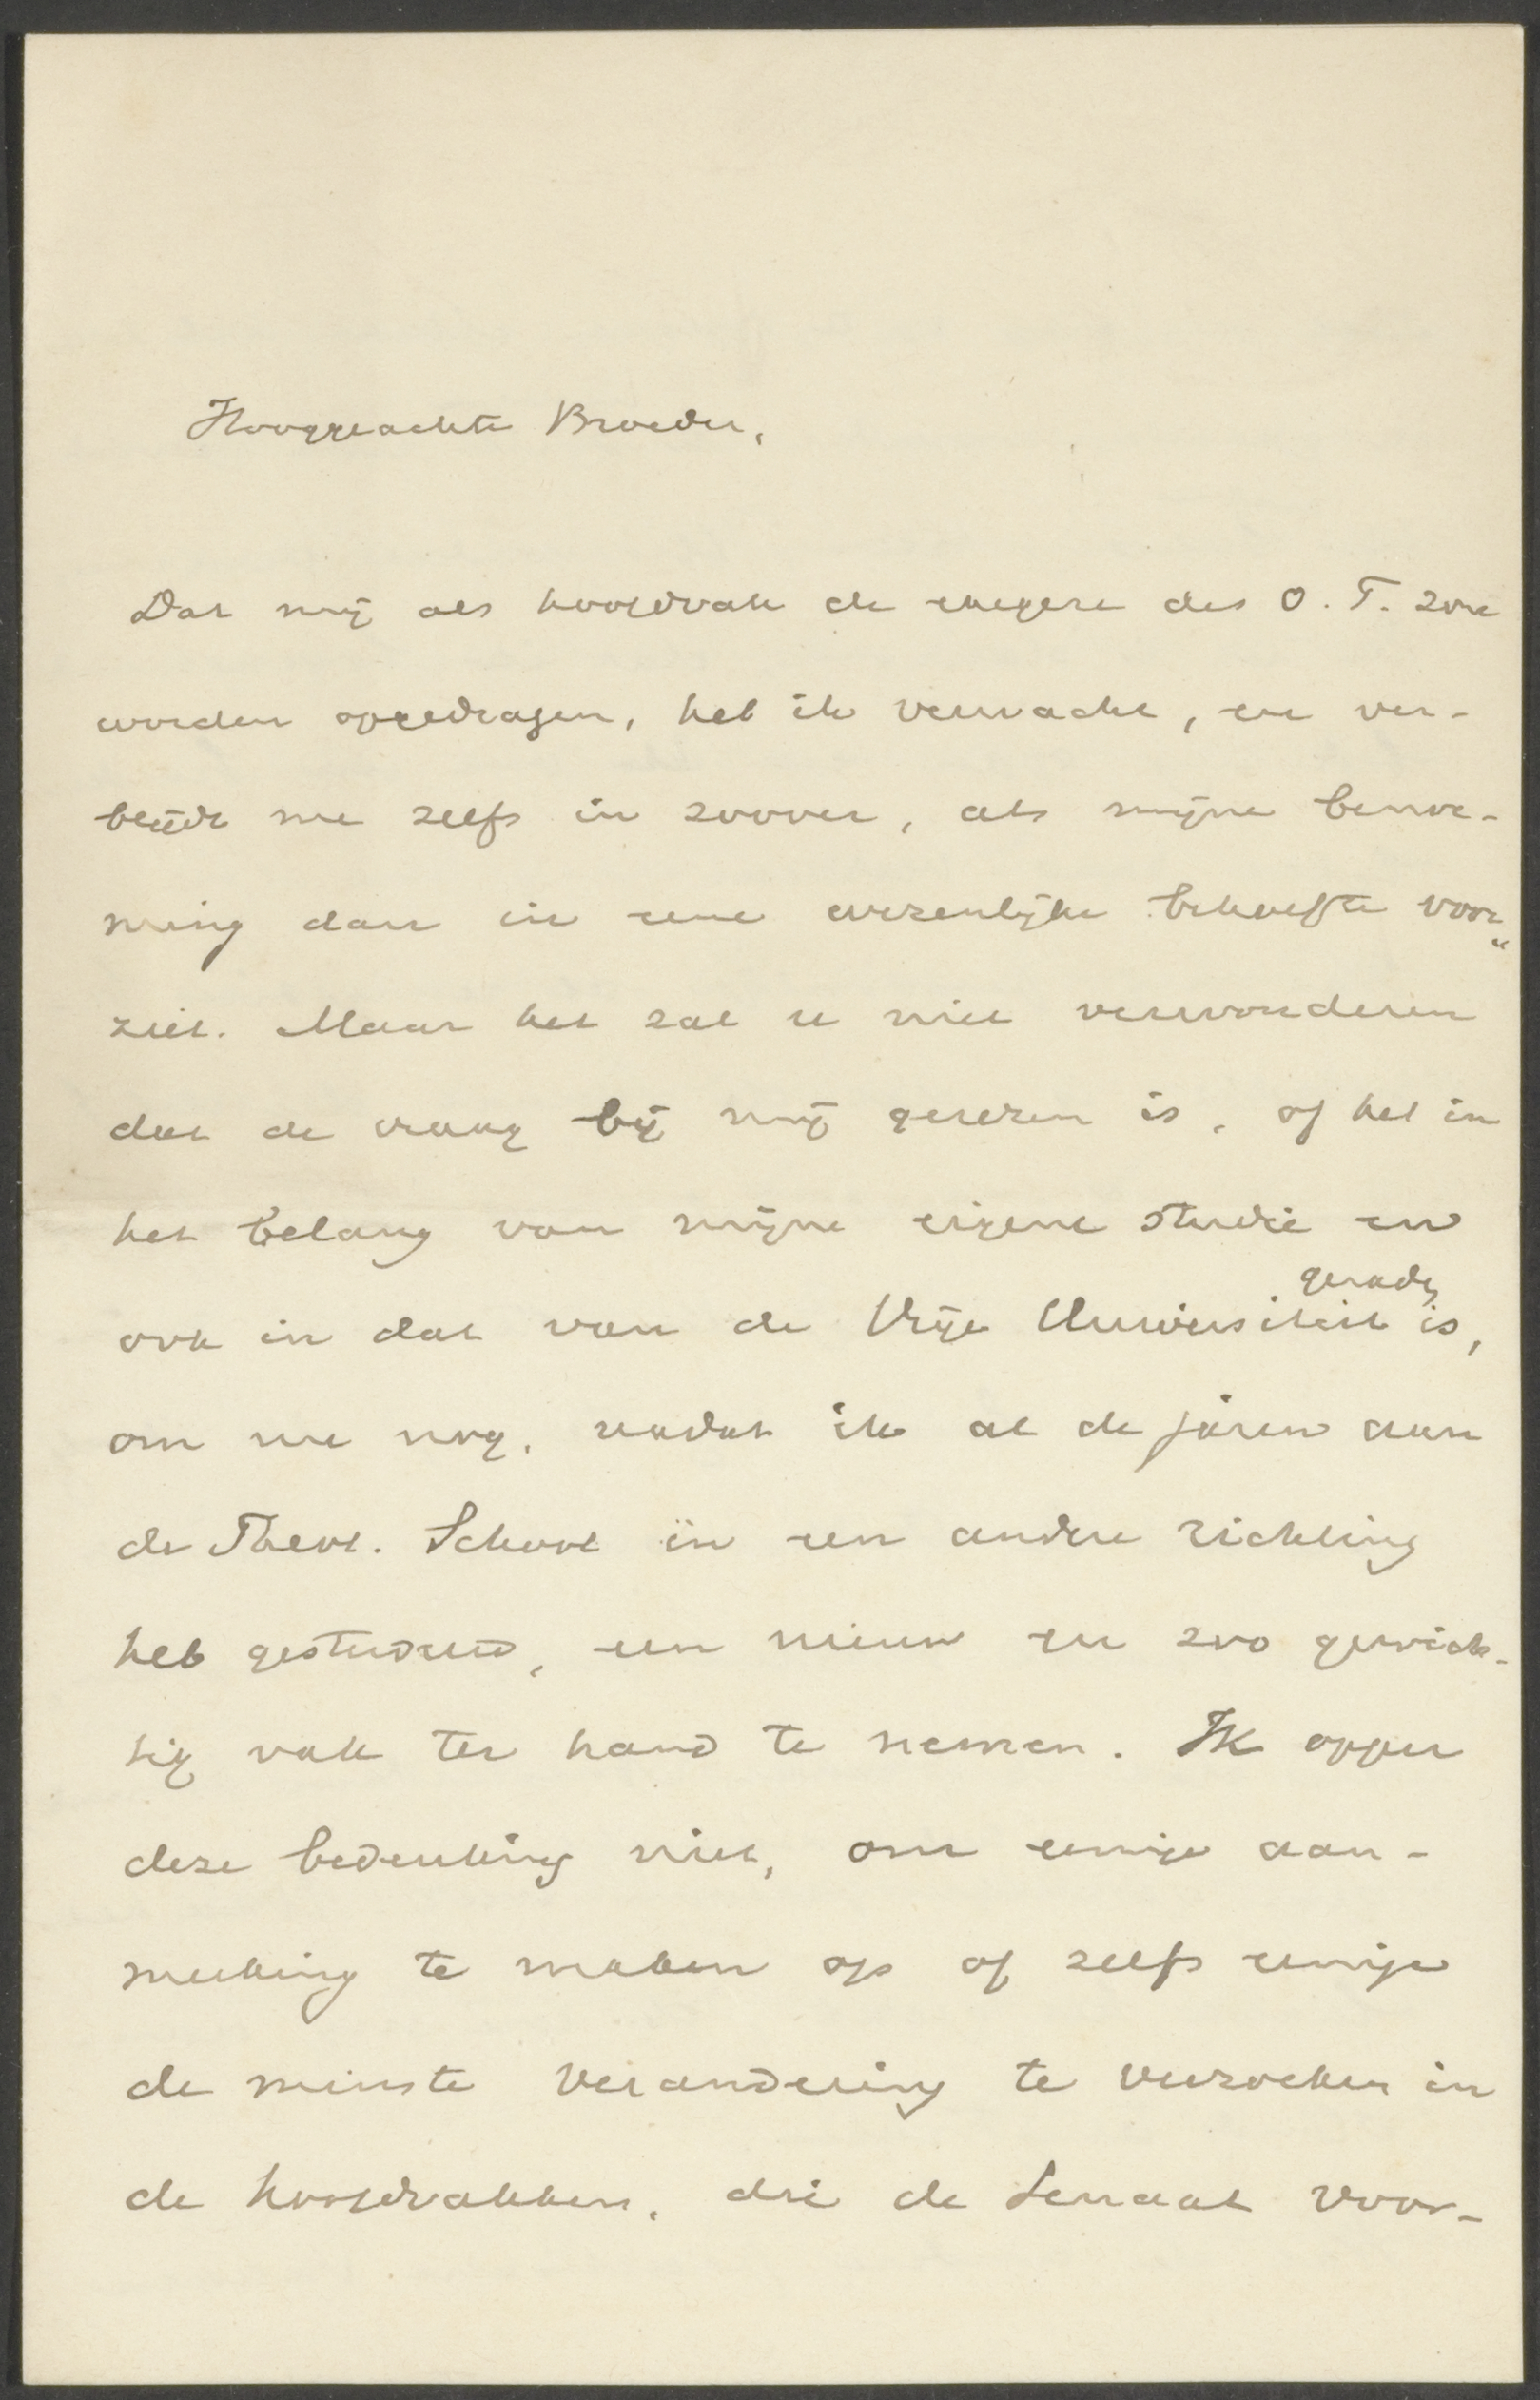 Hooggeachte Broeder,
Dat mij als hoofdvak de exegese des O. T. zou
worden opgedragen, heb ik verwacht, en ver-
blijdt me zelfs in zoover, als mijne benoe-
ming dan in eene wezenlijke behoefte voor-
ziet. Maar het zal u niet verwonderen
dat de vraag bij mij gerezen is, of het in
het belang van mijne eigene studie en
ook in dat van de Vrije Universiteit geraden is,
om me nog, nadat ik al de jaren aan
de Theol. School in een andere richting
heb gestudeerd, een nieuw en zoo gewich-
tig vak ter hand te nemen. Ik opper
deze bedenking niet, om eenige aan-
merking te maken op of zelfs eenige
de minste verandering te verzoeken in
de hoofdvakken, die de Senaat voor-